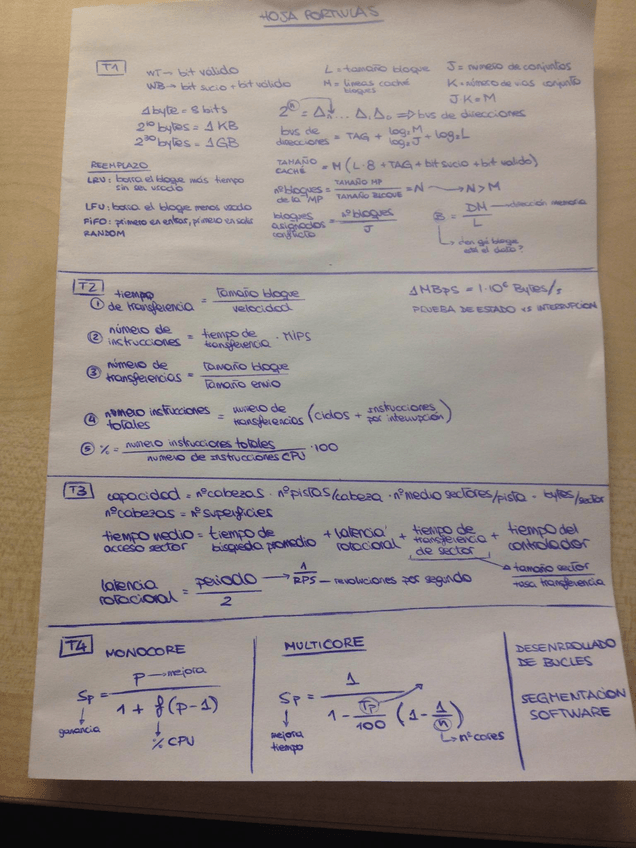 HOJA FORMULAS
T1
WT → bit valido
WB → bit sucio + bit valido
L = tamaño bloque
M = lineas caché
bloques
J = numero de conjuntos
K = número de vias conjunto
J·K = M
1 byte = 8 bits
2^10 bytes = 1 KB
2^30 bytes = 1 GB
2^n = A_n ... A_1 A_0 ⇒ bus de direcciones
bus de direcciones = TAG + log_2 M / log_2 J + log_2 L
REEMPLAZO
LRU: borra el bloque más tiempo
sin ser usado
LFU: borra el bloque menos usado
FIFO: primero en entrar, primero en salir
RANDOM
TAMAÑO CACHÉ = M (L·8 + TAG + bit sucio + bit valido)
nº bloques de la MP = TAMAÑO MP / TAMAÑO BLOQUE = N → N > M
bloques asignados conjunto = nº bloques / J
B = DM / L
→ dirección memoria
→ ¿en qué bloque
está el dato?
T2
① tiempo de transferencia = Tamaño bloque / velocidad
1 MBps = 1·10^6 Bytes/s
PRUEBA DE ESTADO vs INTERRUPCION
② número de instrucciones = tiempo de transferencia · MIPS
③ número de transferencias = Tamaño bloque / Tamaño envio
④ numero instrucciones totales = numero de transferencias (ciclos + instrucciones por interrupción)
⑤ % = numero instrucciones totales / numero de instrucciones CPU · 100
T3
capacidad = nº cabezas · nº pistas/cabeza · nº medio sectores/pista · bytes/sector
nº cabezas = nº superficies
tiempo medio acceso sector = tiempo de búsqueda promedio + latencia rotacional + tiempo de transferencia de sector + tiempo del controlador
→ tamaño sector / tasa transferencia
latencia rotacional = periodo / 2 → 1 / RPS — revoluciones por segundo
T4
MONOCORE
Sp = P / 1 + f (P - 1)
→ mejora
ganancia
% CPU
MULTICORE
Sp = 1 / 1 - Tp / 100 (1 - 1 / n)
mejora
tiempo
→ nº cores
DESENRROLLADO
DE BUCLES
SEGMENTACION
SOFTWARE